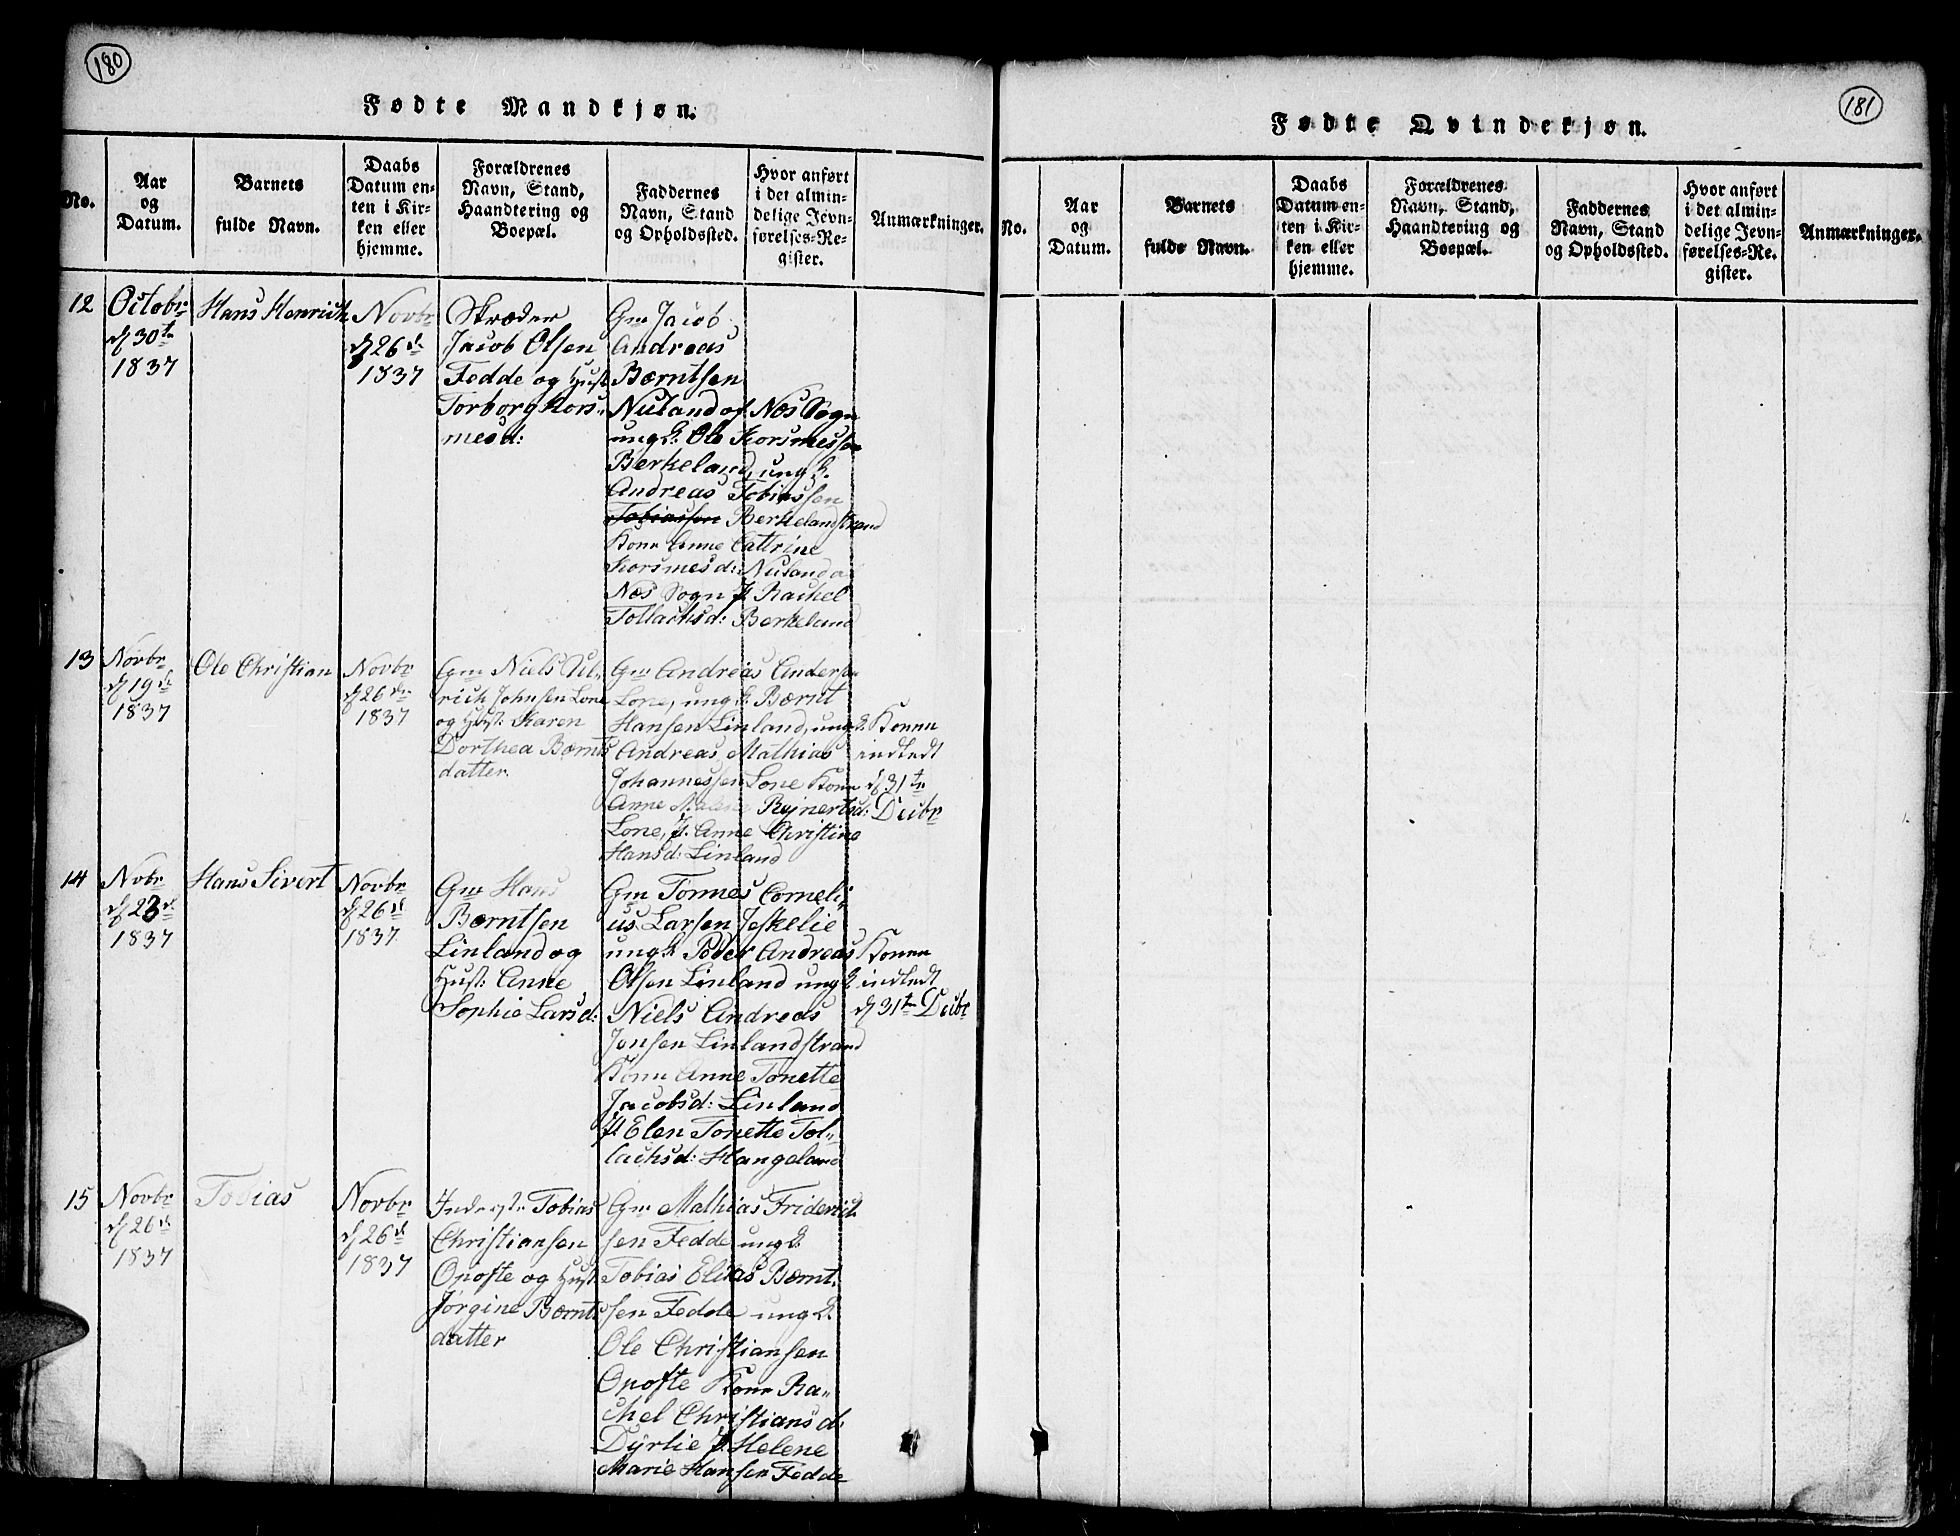 180
Fødte Mandkjøn.
No.
Aar
og
Datum.
Barnets
fulde Navn.
Daabs
Datum en-
ten i Kir-
ken eller
hjemme.
Forældrenes
Navn, Stand,
Haandtering og
Boepæl.
Faddernes
Navn, Stand
og Opholdssted.
Hvor anført
i det almin-
delige Jevn-
førelses-Re-
gister.
Anmærkninger.
12
Octobr
d 30te
1837
Hans Henrich
Novbr
d 26de
1837
Skræder
Jacob Olsen
Fedde og Hust
Torborg Kors-
mesd:
Gm Jacob
Andreas
Bærntsen
Nuland af Nes Sogn
ungk: Ole Korsmessen
Berkeland, ungk.
Andreas Tobiassen
Tobiassen Berkelandstrand
Kone Anne Cattrine
Korsmesd: Nuland af
Nes Sogn P. Rachel
Tollachsd: Berkeland
13
Novbr
d 19de
1837
Ole Christian
Novbr
d 26de
1837
Gm Niels Ul-
rich Johnsen Lone
og Hust: Karen
Dorthea Bærnts
datter.
Gm Andreas Andersen
Lone, ungk: Bærnt
Hansen Linland, ungk.
Andreas Mathias
Johannessen Lone Kone
Anne Malene Rejnertsd:
Lone, P. Anne Christine
Hansd: Linland
Konen
indledt
d 31te
Decbr
14
Novbr
d 23de
1837
Hans Sivert
Novbr
d 26de
1837
Gm Hans
Bærntsen
Linland og
Hust: Anne
Sophie Larsd:
Gm Tønnes Corneli-
us Larsen Jeskelie
ungk Peder Andreas
Olsen Linland ungk
Niels Andreas
Jensen Linlandstrand
Kone Anne Tonette
Jacobsd: Linland
P. Elen Tonette Tol-
lachsd: Hangeland
Konen
indledt
d 31te Decbr
15
Novbr
d 26de
1837
Tobias
Novbr
d 26de
1837
Inderste Tobias
Christiansen
Opofte og Hust
Jørgine Bærnts
datter
Gm Mathias Friderich
sen Fedde ungk.
Tobias Elias Bærnt-
sen Fedde ungk.
Ole Christiansen
Opofte Kone Ra-
chel Christiansd:
Dyrlie P. Helene
Marie Hansen Fedde
181
Fødte Qvindekjøn.
No.
Aar
og
Datum.
Barnets
fulde Navn.
Daabs
Datum en-
ten i Kir-
ken eller
hjemme.
Forældrenes
Navn, Stand,
Haandtering og
Boepæl.
Faddernes
Navn, Stand
og Opholdssted.
Hvor anført
i det almin-
delige Jevn-
førelses-Re-
gister.
Anmærkninger.